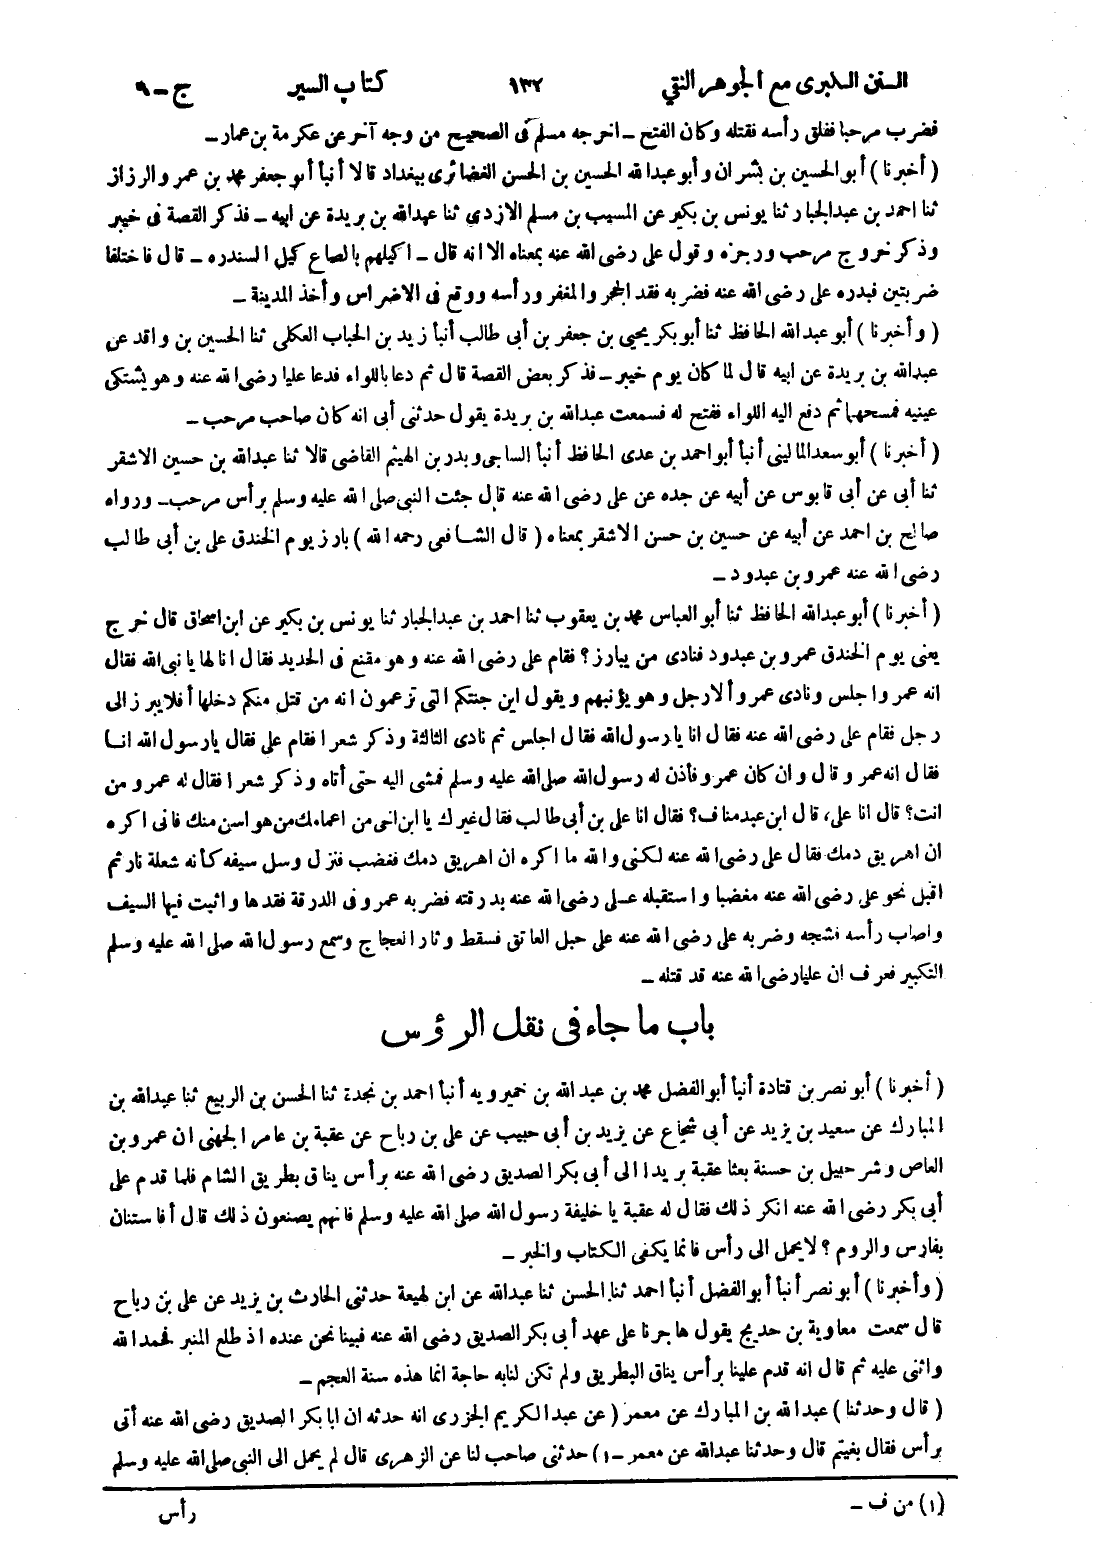 السنن الكبرى مع الجوهر النقي ١٣٢ كتاب السير ج - ٩
فضرب مرحبا ففلق رأسه فقتله وكان الفتح - اخرجه مسلم فى الصحيح من وجه آخر عن عكرمة بن عمار -
( أخبرنا ) أبو الحسين بن بشران وأبو عبدالله الحسين بن الحسن الغضائرى ببغداد قالا أنبأ أبو جعفر محمد بن عمرو الرزاز
ثنا احمد بن عبدالجبار ثنا يونس بن بكير عن المسيب بن مسلم الازدى ثنا عبدالله بن بريدة عن ابيه - فذكر القصة فى خيبر
وذكر خروج مرحب ورجزه وقول على رضى الله عنه بمعناه الا انه قال - اكيلهم بالصاع كيل السندره - قال فاختلفا
ضربتين فبدره على رضى الله عنه فضربه فقد الحجر والمغفر ورأسه ووقع فى الاضراس وأخذ المدينة -
( وأخبرنا ) أبو عبد الله الحافظ ثنا أبو بكر يحيى بن جعفر بن أبى طالب أنبأ زيد بن الحباب العكلى ثنا الحسين بن واقد عن
عبدالله بن بريدة عن ابيه قال لما كان يوم خيبر - فذكر بعض القصة قال ثم دعا باللواء فدعا عليا رضى الله عنه وهو يشتكى
عينيه فمسحهما ثم دفع اليه اللواء ففتح له فسمعت عبدالله بن بريدة يقول حدثنى أبى انه كان صاحب مرحب -
( أخبرنا ) أبو سعد المالينى أنبأ أبو احمد بن عدى الحافظ أنبأ الساجى وبدر بن الهيثم القاضى قالا ثنا عبدالله بن حسين الاشقر
ثنا أبى عن أبى قابوس عن أبيه عن جده عن على رضى الله عنه قال جئت النبى صلى الله عليه وسلم برأس مرحب - ورواه
صالح بن احمد عن أبيه عن حسين بن حسن الاشقر بمعناه ( قال الشافعى رحمه الله ) بارز يوم الخندق على بن أبى طالب
رضى الله عنه عمرو بن عبدود -
( أخبرنا ) أبو عبدالله الحافظ ثنا أبو العباس محمد بن يعقوب ثنا احمد بن عبدالجبار ثنا يونس بن بكير عن ابن اسحاق قال خرج
يعنى يوم الخندق عمرو بن عبدود فنادى من يبارز؟ فقام على رضى الله عنه وهو مقنع فى الحديد فقال انا لها يا نبى الله فقال
انه عمرو اجلس ونادى عمرو ألا رجل وهو يؤنبهم ويقول اين جنتكم التى تزعمون انه من قتل منكم دخلها أفلا يبرز الى
رجل فقام على رضى الله عنه فقال انا يا رسول الله فقال اجلس ثم نادى الثالثة وذكر شعرا فقام على فقال يا رسول الله انا
فقال انه عمرو قال وان كان عمرو فأذن له رسول الله صلى الله عليه وسلم فمشى اليه حتى أتاه وذكر شعرا فقال له عمرو من
انت؟ قال انا على، قال ابن عبد مناف؟ فقال انا على بن أبى طالب فقال غيرك يا ابن اخى من اعمامك من هو اسن منك فانى اكره
ان اهريق دمك فقال على رضى الله عنه لكنى والله ما اكره ان اهريق دمك فغضب فنزل وسل سيفه كأنه شعلة نار ثم
اقبل نحو على رضى الله عنه مغضبا واستقبله على رضى الله عنه بدرقته فضربه عمرو فى الدرقة فقدها واثبت فيها السيف
واصاب رأسه فشجه وضربه على رضى الله عنه على حبل العاتق فسقط وثار العجاج وسمع رسول الله صلى الله عليه وسلم
التكبير فعرف ان عليا رضى الله عنه قد قتله -
باب ما جاء فى نقل الرؤس
( أخبرنا ) أبو نصر بن قتادة أنبأ أبو الفضل محمد بن عبد الله بن خميرويه أنبأ احمد بن نجدة ثنا الحسن بن الربيع ثنا عبدالله بن
المبارك عن سعيد بن يزيد عن أبى شجاع عن يزيد بن أبى حبيب عن على بن رباح عن عقبة بن عامر الجهنى ان عمرو بن
العاص وشرحبيل بن حسنة بعثا عقبة بريدا الى أبى بكر الصديق رضى الله عنه برأس يناق بطريق الشام فلما قدم على
أبى بكر رضى الله عنه انكر ذلك فقال له عقبة يا خليفة رسول الله صلى الله عليه وسلم فانهم يصنعون ذلك قال أفاستنان
بفارس والروم؟ لا يحمل الى رأس فانما يكفى الكتاب والخبر -
( وأخبرنا ) أبو نصر أنبأ أبو الفضل أنبأ احمد ثنا الحسن ثنا عبدالله عن ابن لهيعة حدثنى الحارث بن يزيد عن على بن رباح
قال سمعت معاوية بن حديج يقول هاجرنا على عهد أبى بكر الصديق رضى الله عنه فبينا نحن عنده اذ طلع المنبر فحمد الله
واثنى عليه ثم قال انه قدم علينا برأس يناق البطريق ولم تكن لنا به حاجة انما هذه سنة العجم -
( قال وحدثنا ) عبدالله بن المبارك عن معمر ( عن عبد الكريم الجزرى انه حدثه ان ابا بكر الصديق رضى الله عنه أتى
برأس فقال بغيتم قال وحدثنا عبدالله عن معمر - ١) حدثنى صاحب لنا عن الزهرى قال لم يحمل الى النبى صلى الله عليه وسلم
(١) من ف - رأس